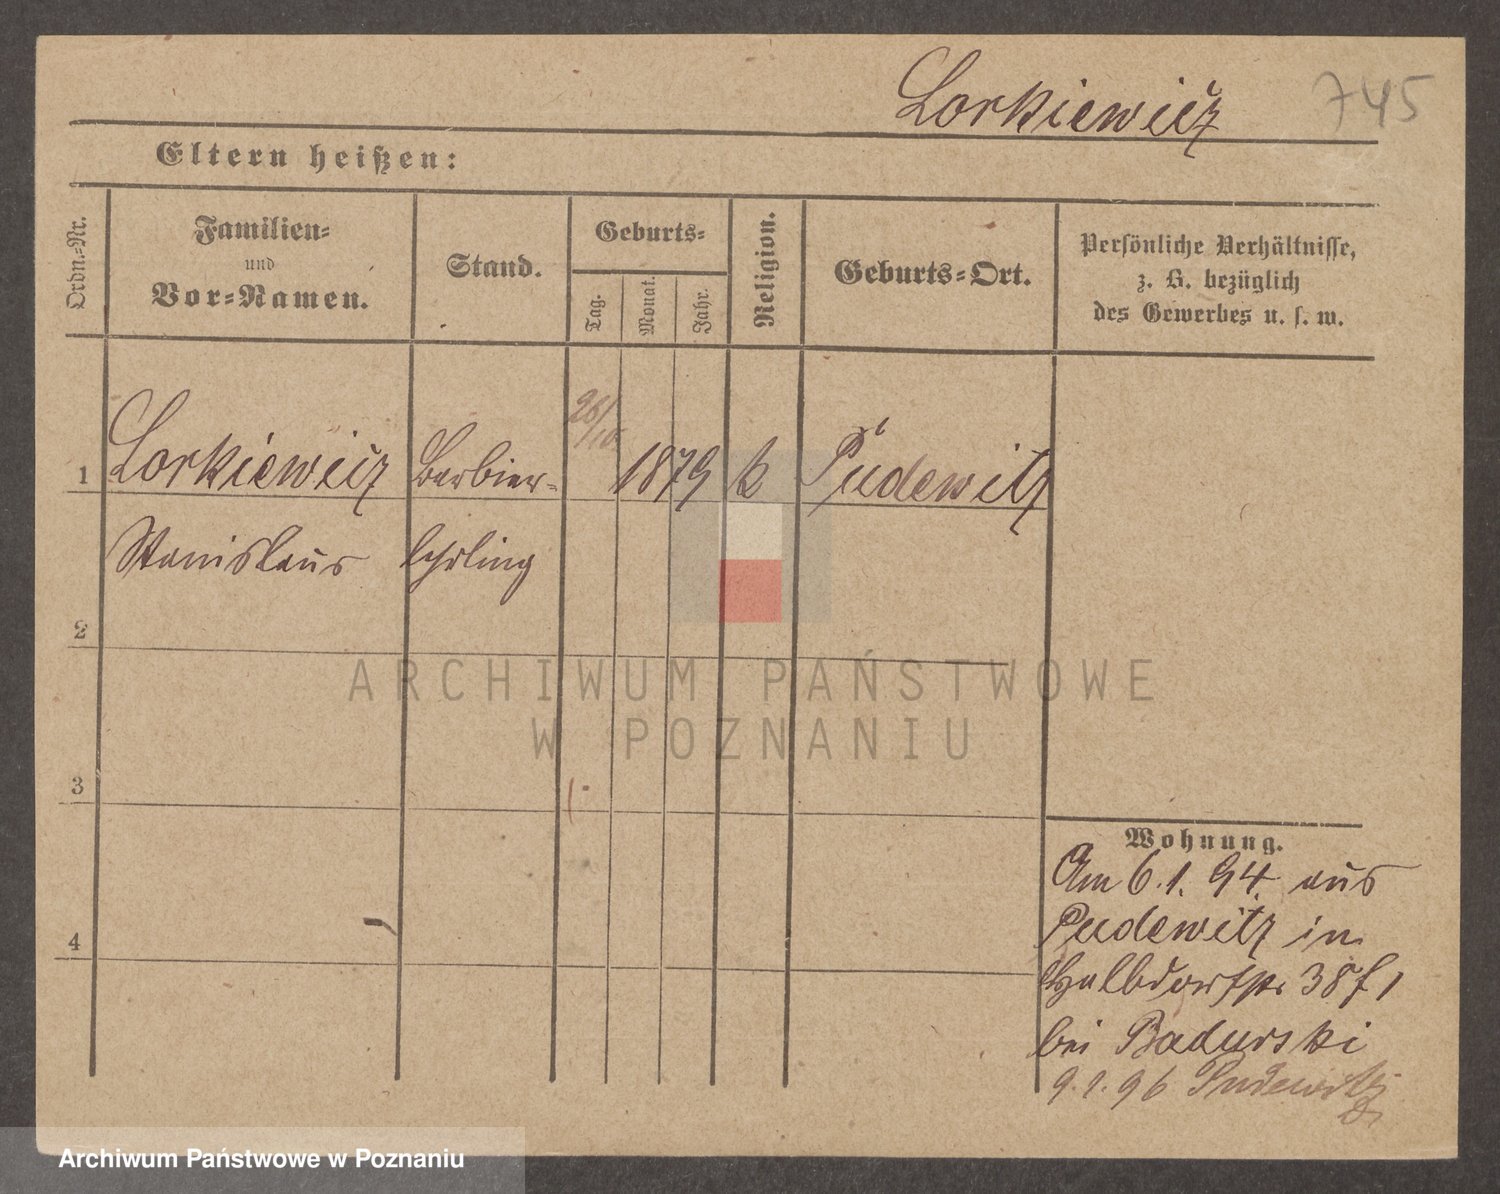 Lorkiewicz 745
Eltern heißen:
Ordn.-Nr.
Familien-
und
Vor-Namen.
Stand.
Geburts-
Tag.
Monat.
Jahr.
Religion.
Geburts-Ort.
Persönliche Verhältnisse,
z. B. bezüglich
des Gewerbes u. s. w.
26/10.
1 Lorkiewicz Barbier- 1879 k Pudewitz
Stanislaus lehrling
2
ARCHIWUM PAŃSTWOWE
W POZNANIU
3
4
Wohnung.
Am 6.1.94 aus
Pudewitz in
Halbdorfstr 38 f 1
bei Badurski
9.1.96 Pudewitz
Archiwum Państwowe w Poznaniu